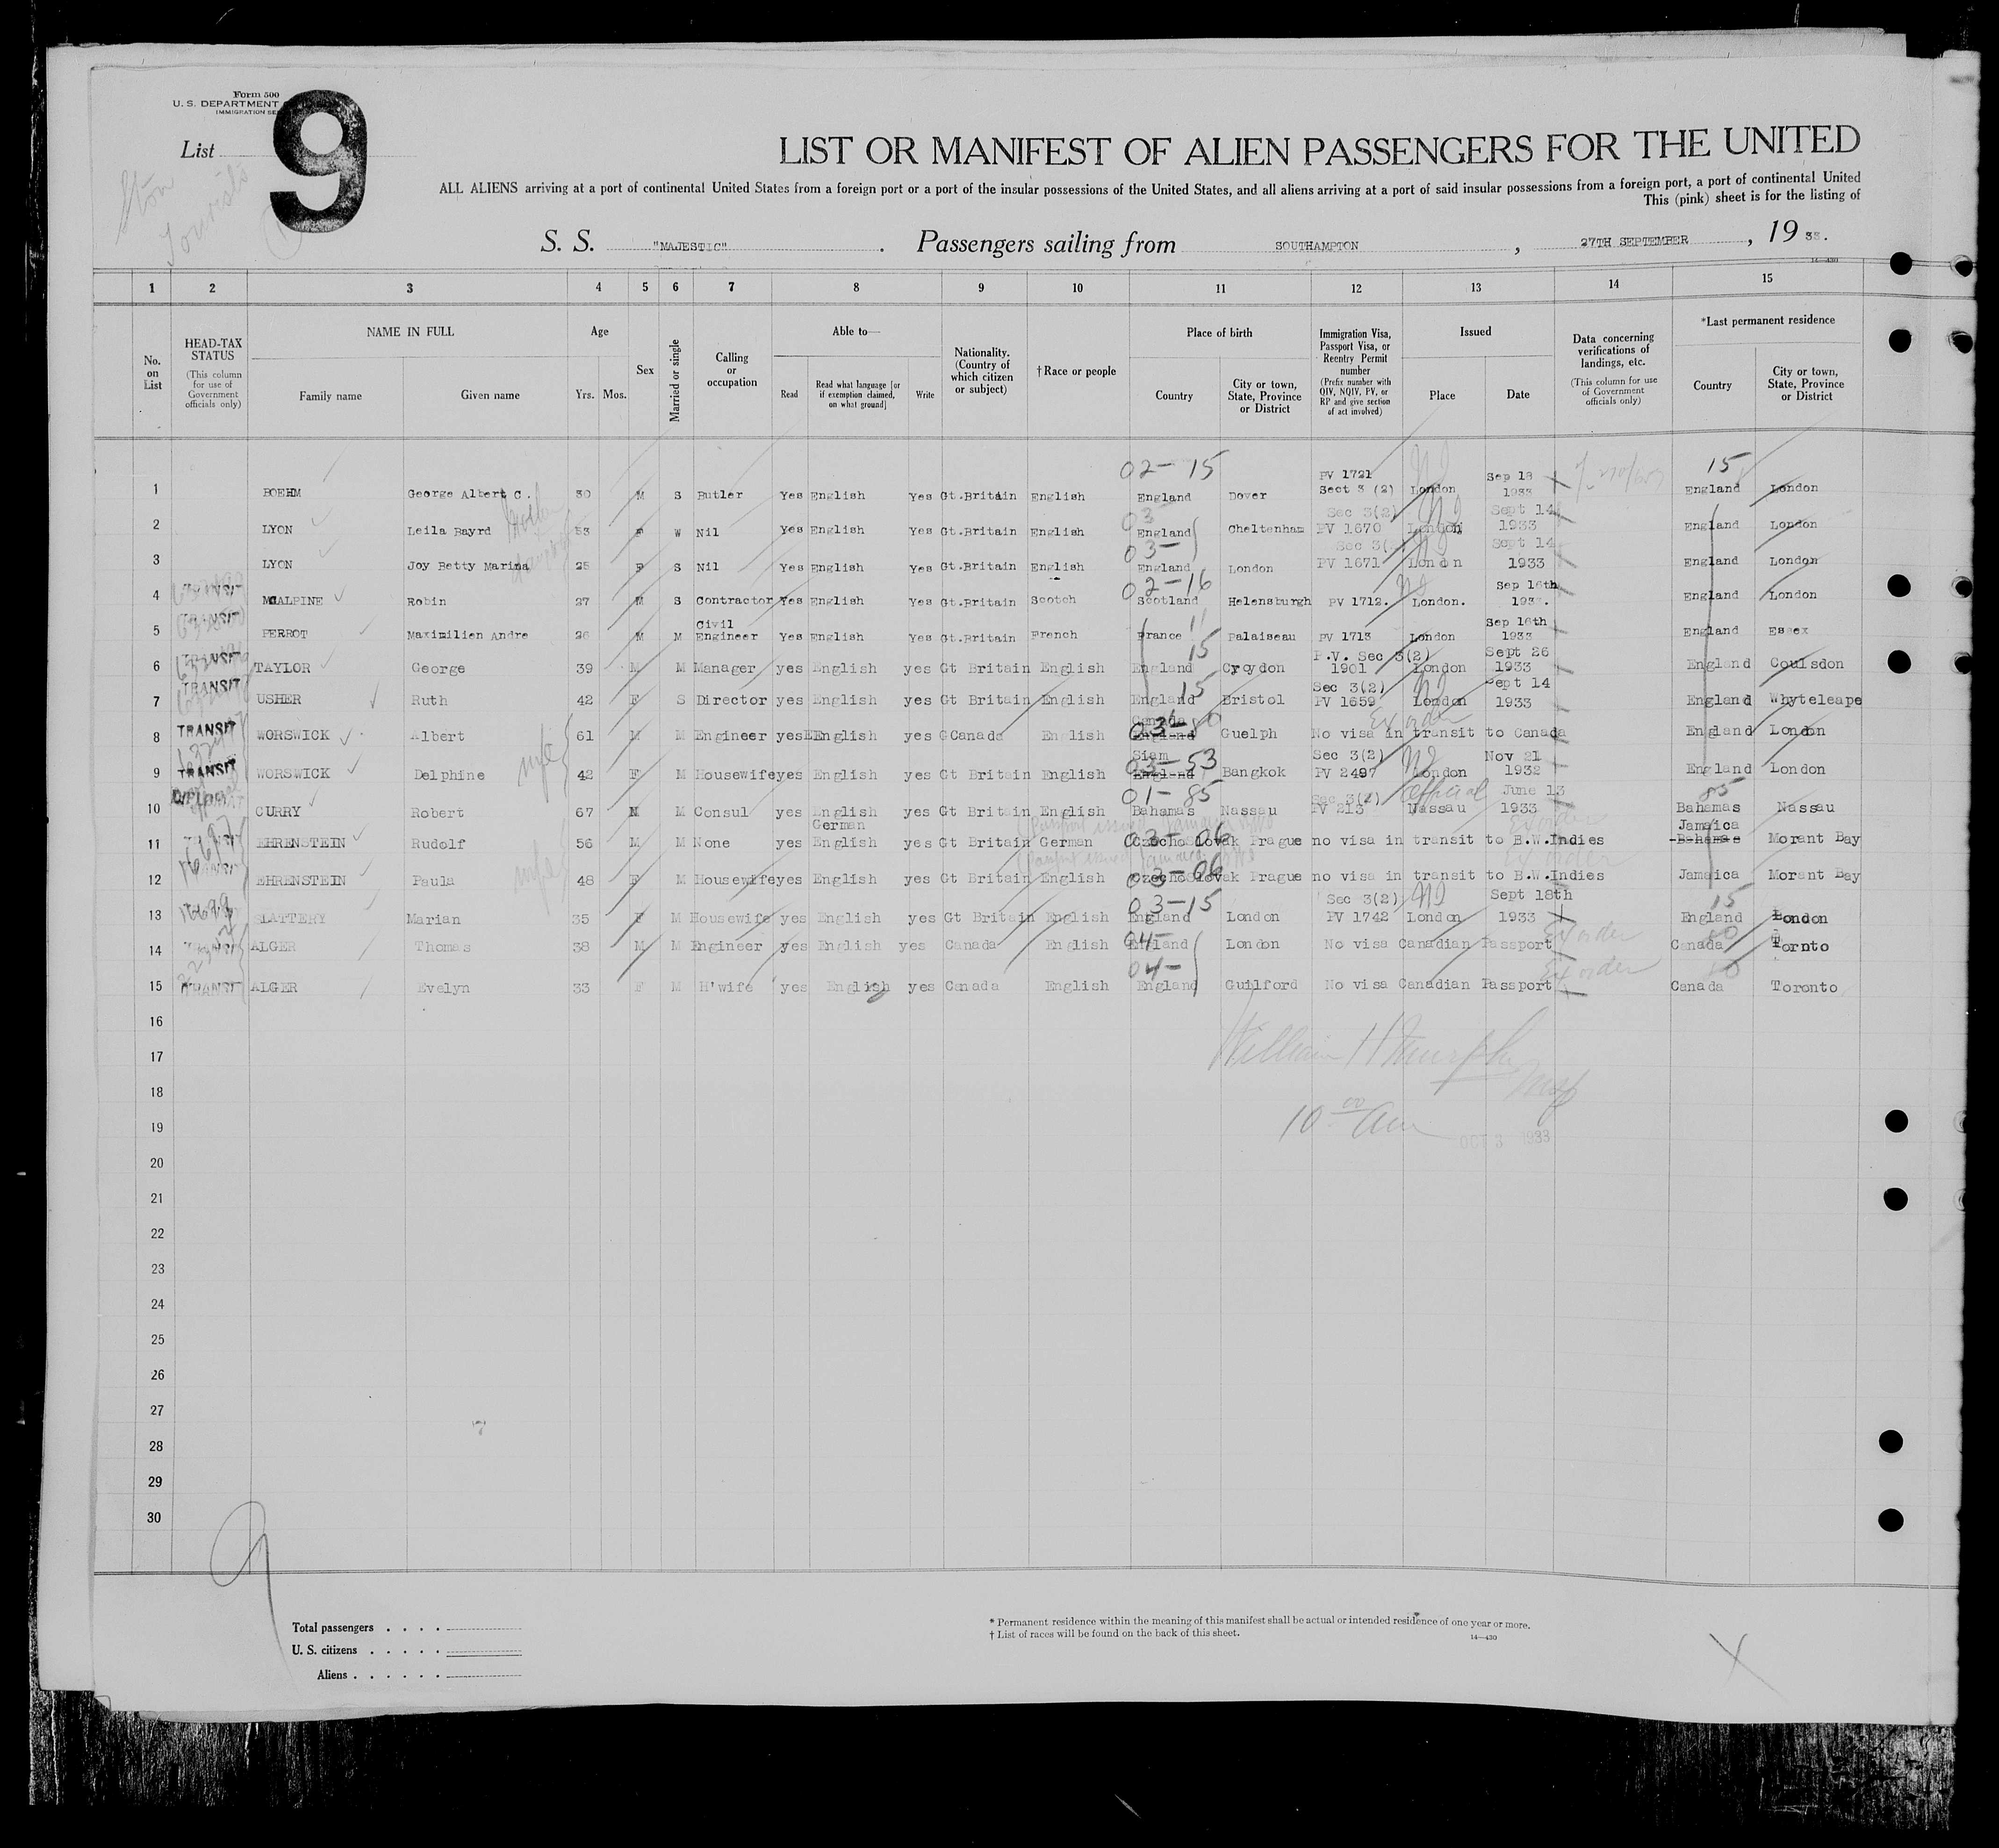 Form 500
U. S. DEPARTMENT
IMMIGRATION SE
List 9
LIST OR MANIFEST OF ALIEN PASSENGERS FOR THE UNITED
ALL ALIENS arriving at a port of continental United States from a foreign port or a port of the insular possessions of the United States, and all aliens arriving at a port of said insular possessions from a foreign port, a port of continental United
This (pink) sheet is for the listing of
S. S. "MAJESTIC". Passengers sailing from SOUTHAMPTON, 27TH SEPTEMBER, 1933.
14—430
1 2 3 4 5 6 7 8 9 10 11 12 13 14 15
No. on List
HEAD-TAX STATUS (This column for use of Government officials only)
NAME IN FULL Family name Given name
Age Yrs. Mos.
Sex
Married or single
Calling or occupation
Able to— Read Read what language [or if exemption claimed, on what ground] Write
Nationality. (Country of which citizen or subject)
†Race or people
Place of birth Country City or town, State, Province or District
Immigration Visa, Passport Visa, or Reentry Permit number (Prefix number with QIV, NQIV, PV, or RP and give section of act involved)
Issued Place Date
Data concerning verifications of landings, etc. (This column for use of Government officials only)
*Last permanent residence Country City or town, State, Province or District
02—15 15
1 BOEHM George Albert C. 30 M S Butler Yes English Yes Gt.Britain English England Dover PV 1721 Sect 3 (2) London Sep 18 1933 England London
2 LYON Leila Bayrd 53 F W Nil Yes English Yes Gt.Britain English 03 England Cheltenham Sec 3(2) PV 1670 London Sept 14 1933 England London
3 LYON Joy Betty Marina 25 F S Nil Yes English Yes Gt.Britain English 03— England London Sec 3(2) PV 1671 London Sept 14 1933 England London
4 TRANSIT McALPINE Robin 27 M S Contractor Yes English Yes Gt.Britain Scotch 02—16 Scotland Helensburgh PV 1712. London. Sep 16th 193 . England London
5 TRANSIT PERROT Maximilien Andre 26 M M Civil Engineer Yes English Yes Gt.Britain French 11 France Palaiseau PV 1713 London Sep 16th 1933 England Essex
6 TRANSIT TAYLOR George 39 M M Manager yes English yes Gt Britain English 15 England Croydon P.V. Sec 3(2) 1901 London Sept 26 1933 England Coulsdon
7 TRANSIT USHER Ruth 42 F S Director yes English yes Gt Britain English 15 England Bristol Sec 3(2) PV 1659 London Sept 14 1933 England Whyteleape
8 TRANSIT WORSWICK Albert 61 M M Engineer yes English yes Canada English Canada England Guelph No visa in transit to Canada England London
9 TRANSIT WORSWICK Delphine wife 42 F M Housewife yes English yes Gt Britain English 03—53 Siam England Bangkok Sec 3(2) PV 2497 London Nov 21 1932 England London
10 DIPLOMAT CURRY Robert 67 M M Consul yes English yes Gt Britain English 01—85 Bahamas Nassau Sec 3(2) PV 213 Official Nassau June 13 1933 85 Bahamas Nassau
11 EHRENSTEIN Rudolf 56 M M None yes German English yes Gt Britain German 03—06 CzechoSlovak Prague no visa in transit to B.W.Indies Jamaica Bahamas Morant Bay
12 TRANSIT EHRENSTEIN Paula wife 48 F M Housewife yes English yes Gt Britain English 03—06 CzechoSlovak Prague no visa in transit to B.W.Indies Ex order Jamaica Morant Bay
13 SLATTERY Marian 35 F M Housewife yes English yes Gt Britain English 03—15 England London Sec 3(2) PV 1742 London Sept 18th 1933 15 England London
14 ALGER Thomas 38 M M Engineer yes English yes Canada English 04— England London No visa Canadian Passport Ex order Canada Tornto
15 TRANSIT ALGER Evelyn 33 F M H'wife yes English yes Canada English 04— England Guilford No visa Canadian Passport Ex order Canada Toronto
16
17 William H Murphy
18
19 10 00 am OCT 3 1933
20
21
22
23
24
25
26
27
28
29
30
9
Total passengers . . . .
U. S. citizens . . . . .
Aliens . . . . . .
* Permanent residence within the meaning of this manifest shall be actual or intended residence of one year or more.
† List of races will be found on the back of this sheet.
14—430